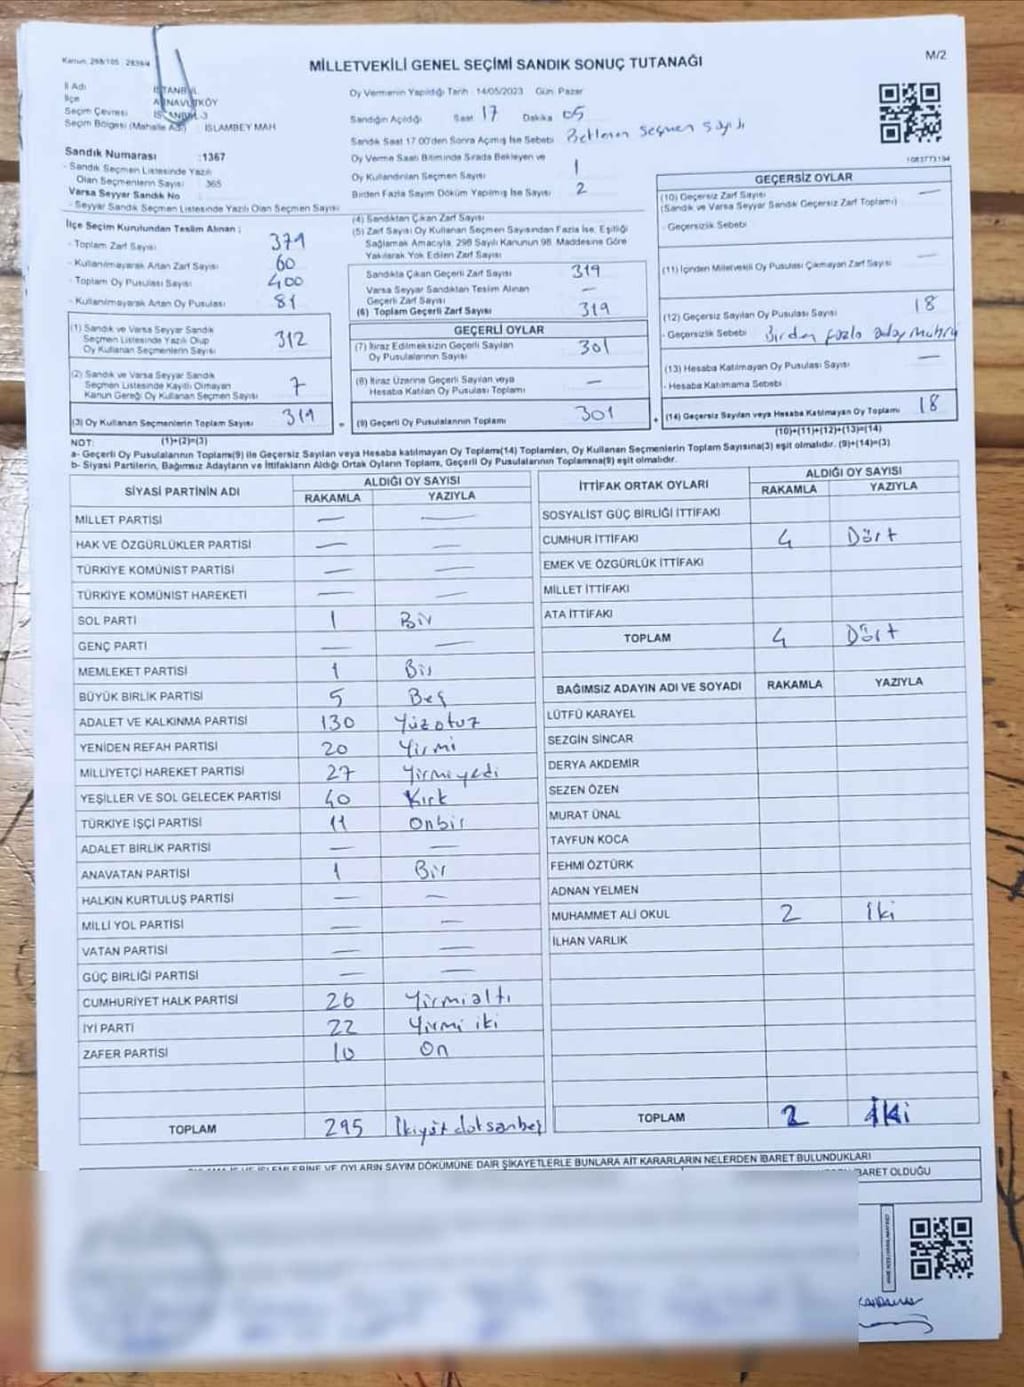 Kanun: 298/105 - 2839/4
MİLLETVEKİLİ GENEL SEÇİMİ SANDIK SONUÇ TUTANAĞI
M/2
İl Adı : İSTANBUL
İlçe ARNAVUTKÖY
Seçim Çevresi İSTANBUL-3
Seçim Bölgesi (Mahalle Adı) : İSLAMBEY MAH
Oy Vermenin Yapıldığı Tarih : 14/05/2023 Gün: Pazar
Sandığın Açıldığı Saat 17 Dakika 05
Sandık Saat 17:00'den Sonra Açılmış İse Sebebi Beklenen seçmen sayısı
Oy Verme Saati Bitiminde Sırada Bekleyen ve
Oy Kullandırılan Seçmen Sayısı 1
Birden Fazla Sayım Döküm Yapılmış İse Sayısı 2
Sandık Numarası :1367
- Sandık Seçmen Listesinde Yazılı
Olan Seçmenlerin Sayısı 365
Varsa Seyyar Sandık No
- Seyyar Sandık Seçmen Listesinde Yazılı Olan Seçmen Sayısı
İlçe Seçim Kurulundan Teslim Alınan :
- Toplam Zarf Sayısı 379
- Kullanılmayarak Artan Zarf Sayısı 60
- Toplam Oy Pusulası Sayısı 400
- Kullanılmayarak Artan Oy Pusulası 81
(1) Sandık ve Varsa Seyyar Sandık
Seçmen Listesinde Yazılı Olup
Oy Kullanan Seçmenlerin Sayısı 312
(2) Sandık ve Varsa Seyyar Sandık
Seçmen Listesinde Kayıtlı Olmayan
Kanun Gereği Oy Kullanan Seçmen Sayısı 7
(3) Oy Kullanan Seçmenlerin Toplam Sayısı 319
(1)+(2)=(3)
(4) Sandıktan Çıkan Zarf Sayısı
(5) Zarf Sayısı Oy Kullanan Seçmen Sayısından Fazla İse, Eşitliği
Sağlamak Amacıyla, 298 Sayılı Kanunun 98. Maddesine Göre
Yakılarak Yok Edilen Zarf Sayısı
Sandıkta Çıkan Geçerli Zarf Sayısı 319
Varsa Seyyar Sandıktan Teslim Alınan
Geçerli Zarf Sayısı —
(6) Toplam Geçerli Zarf Sayısı 319
GEÇERLİ OYLAR
(7) İtiraz Edilmeksizin Geçerli Sayılan
Oy Pusulalarının Sayısı 301
(8) İtiraz Üzerine Geçerli Sayılan veya
Hesaba Katılan Oy Pusulası Toplamı —
(9) Geçerli Oy Pusulalarının Toplamı 301
1083773194
GEÇERSİZ OYLAR
(10) Geçersiz Zarf Sayısı —
(Sandık ve Varsa Seyyar Sandık Geçersiz Zarf Toplamı)
- Geçersizlik Sebebi
(11) İçinden Milletvekili Oy Pusulası Çıkmayan Zarf Sayısı —
(12) Geçersiz Sayılan Oy Pusulası Sayısı 18
- Geçersizlik Sebebi Birden fazla aday mührü
(13) Hesaba Katılmayan Oy Pusulası Sayısı —
- Hesaba Katılmama Sebebi
(14) Geçersiz Sayılan veya Hesaba Katılmayan Oy Toplamı 18
(10)+(11)+(12)+(13)=(14)
NOT:
a- Geçerli Oy Pusulalarının Toplamı(9) ile Geçersiz Sayılan veya Hesaba katılmayan Oy Toplamı(14) Toplamları, Oy Kullanan Seçmenlerin Toplam Sayısına(3) eşit olmalıdır. (9)+(14)=(3).
b- Siyasi Partilerin, Bağımsız Adayların ve İttifakların Aldığı Ortak Oyların Toplamı, Geçerli Oy Pusulalarının Toplamına(9) eşit olmalıdır.
SİYASİ PARTİNİN ADI ALDIĞI OY SAYISI
RAKAMLA YAZIYLA
MİLLET PARTİSİ — —
HAK VE ÖZGÜRLÜKLER PARTİSİ — —
TÜRKİYE KOMÜNİST PARTİSİ — —
TÜRKİYE KOMÜNİST HAREKETİ — —
SOL PARTİ 1 Bir
GENÇ PARTİ — —
MEMLEKET PARTİSİ 1 Bir
BÜYÜK BİRLİK PARTİSİ 5 Beş
ADALET VE KALKINMA PARTİSİ 130 Yüzotuz
YENİDEN REFAH PARTİSİ 20 Yirmi
MİLLİYETÇİ HAREKET PARTİSİ 27 Yirmiyedi
YEŞİLLER VE SOL GELECEK PARTİSİ 40 Kırk
TÜRKİYE İŞÇİ PARTİSİ 11 Onbir
ADALET BİRLİK PARTİSİ — —
ANAVATAN PARTİSİ 1 Bir
HALKIN KURTULUŞ PARTİSİ — —
MİLLİ YOL PARTİSİ — —
VATAN PARTİSİ — —
GÜÇ BİRLİĞİ PARTİSİ — —
CUMHURİYET HALK PARTİSİ 26 Yirmialtı
İYİ PARTİ 22 Yirmi iki
ZAFER PARTİSİ 10 On
TOPLAM 295
İTTİFAK ORTAK OYLARI ALDIĞI OY SAYISI
RAKAMLA YAZIYLA
SOSYALİST GÜÇ BİRLİĞİ İTTİFAKI
CUMHUR İTTİFAKI 4 Dört
EMEK VE ÖZGÜRLÜK İTTİFAKI
MİLLET İTTİFAKI
ATA İTTİFAKI
TOPLAM 4 Dört
BAĞIMSIZ ADAYIN ADI VE SOYADI RAKAMLA YAZIYLA
LÜTFÜ KARAYEL
SEZGİN SİNCAR
DERYA AKDEMİR
SEZEN ÖZEN
MURAT ÜNAL
TAYFUN KOCA
FEHMİ ÖZTÜRK
ADNAN YELMEN
MUHAMMET ALİ OKUL 2 İki
İLHAN VARLIK
TOPLAM 2 İki
VE OYLARIN SAYIM DÖKÜMÜNE DAİR ŞİKAYETLERLE BUNLARA AİT KARARLARIN NELERDEN İBARET BULUNDUKLARI
İBARET OLDUĞU